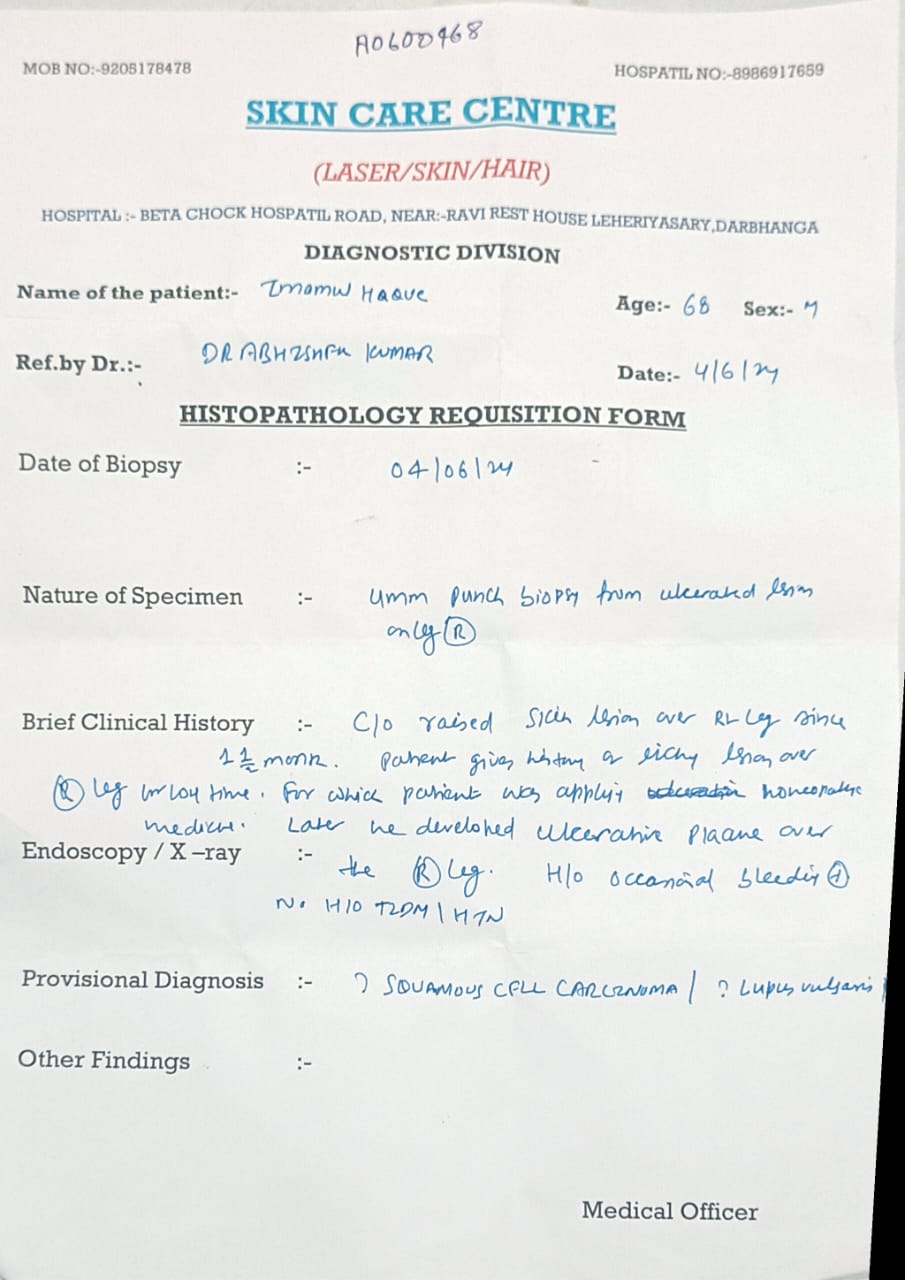 A0600468
MOB NO:-9205178478
HOSPATIL NO:-8986917659
SKIN CARE CENTRE
(LASER/SKIN/HAIR)
HOSPITAL :- BETA CHOCK HOSPATIL ROAD, NEAR:-RAVI REST HOUSE LEHERIYASARY,DARBHANGA
DIAGNOSTIC DIVISION
Name of the patient:- Imamul Haque Age:- 68 Sex:- M
Ref.by Dr.:- DR ABHISHEK KUMAR Date:- 4/6/24
HISTOPATHOLOGY REQUISITION FORM
Date of Biopsy :- 04/06/24
Nature of Specimen :- 4mm punch biopsy from ulcerated lesion
on leg (R)
Brief Clinical History :- C/o raised skin lesion over Rt leg since
1 1/2 month. Patient gives history of itchy lesion over
(R) leg for long time. For which patient was applying homeopathic
medicine. Later he developed ulcerative plaque over
Endoscopy / X –ray :- the (R) leg. H/o occasional bleeding (+)
No H/O T2DM / HTN
Provisional Diagnosis :- ? SQUAMOUS CELL CARCINOMA / ? Lupus vulgaris /
Other Findings :-
Medical Officer